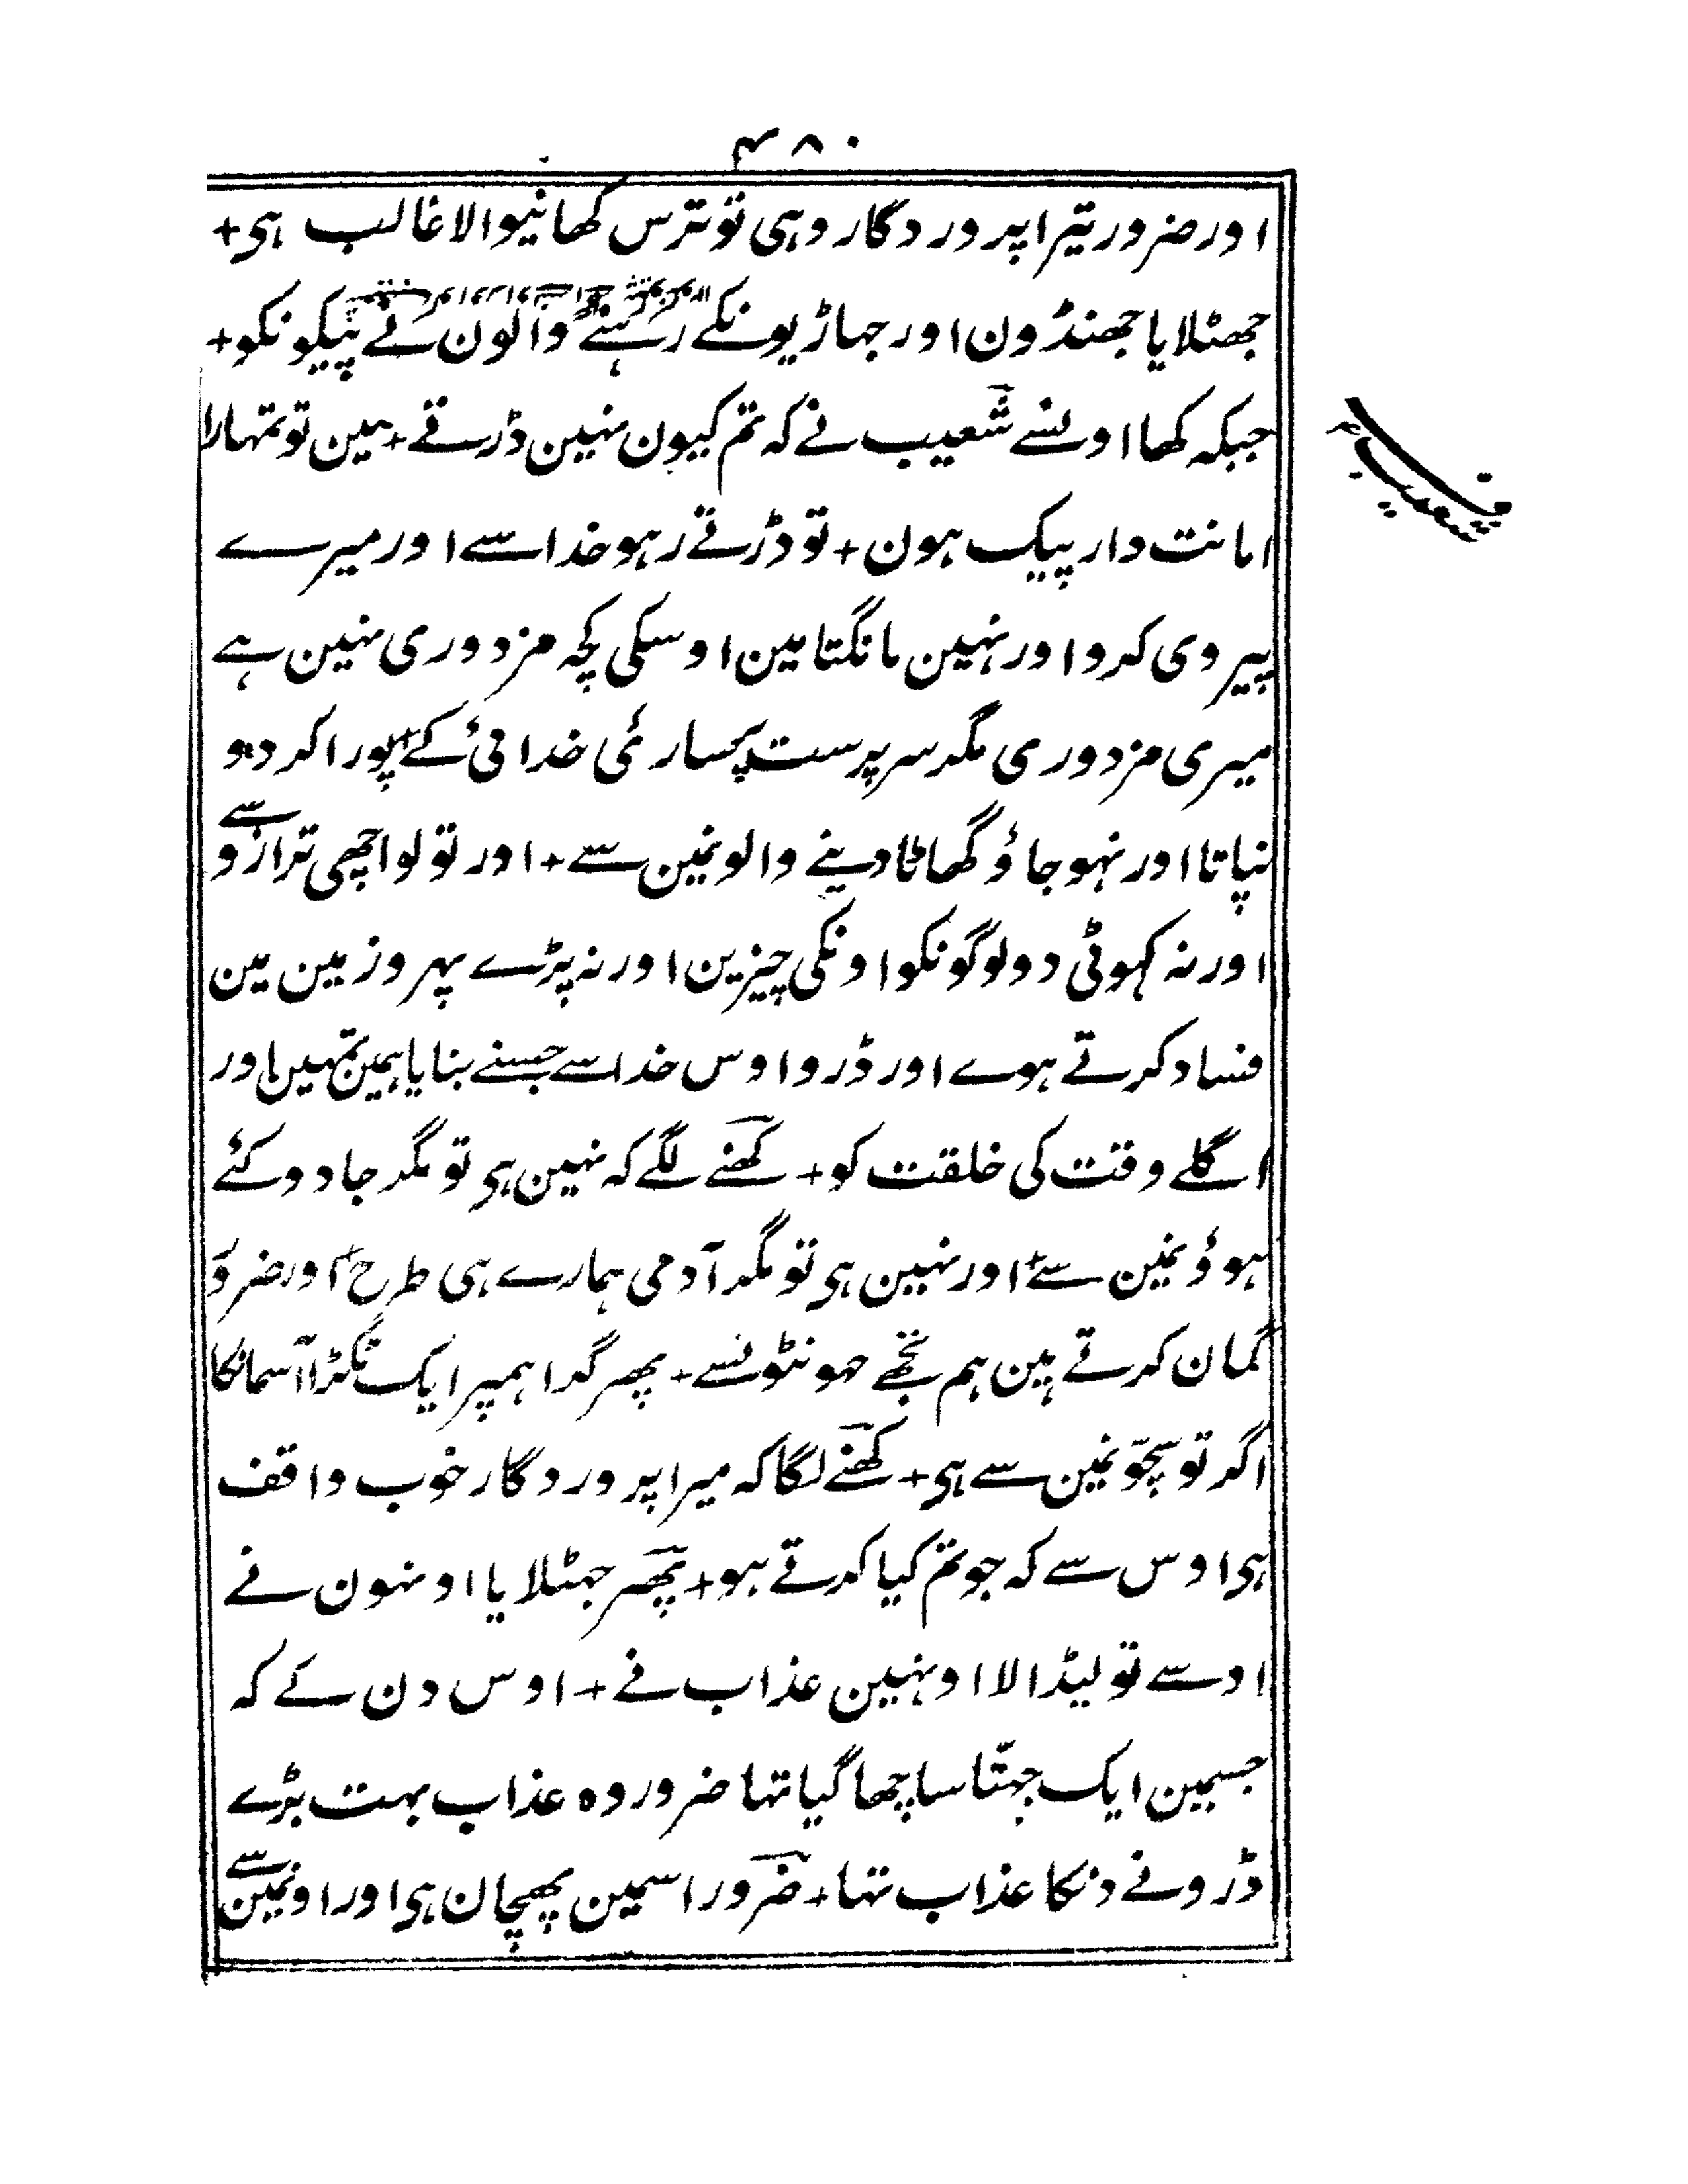 ۴۸۰
اور ضرور تیرا پروردگار وہی تو ترس کھانیوالا غالب ہی+
جھٹلایا جھنڈون اور جہاڑیونکے رہنے والون نے پیکونکو+
جبکہ کھا اونسے شعیب نے کہ تم کیون نہین ڈرتے+ مین تو تمہارا
امانت دار پیک ہون+ تو ڈرتے رہو خدا سے اور میرے
پیروی کرو اور نہین مانگتا مین اوسکی کچہ مزدوری نہین ہے
میری مزدوری مگر سرپرست پر ساری خدائی کے+ پورا کر دو
نپاتا اور نہو جاؤ گھاٹا دینے والونمین سے+ اور تولو اچھی ترازو سے
اور نہ کہوٹی دو لوگونکو اونکی چیزین اور نہ پڑے پہرو زمین مین
فساد کرتے ہوے اور ڈرو اوس خدا سے جسنے بنایا ہمین تمہین اور
اگلے وقت کی خلقت کو+ کھنے لگے کہ نہین ہی تو مگر جادو کئے
ہوؤنمین سے+ اور نہین ہی تو مگر آدمی ہمارے ہی طرح+ اور ضرور
گمان کرتے ہین ہم تجھے جہونٹونسے+ پھر گرا ہمپر ایک ٹکڑا آسمانکا
اگر تو سچّونمین سے ہی+ کھنے لگا کہ میرا پروردگار خوب واقف
ہی اوس سے کہ جو تم کیا کرتے ہو+ پھر جہٹلایا اونہون نے
اوسے تو لیڈالا اونہین عذاب نے+ اوس دن کے کہ
جسمین ایک چہتّا سا چھا گیا تہا ضرور وہ عذاب بہت بڑے
ڈرونے دنکا عذاب تہا+ ضرور اسمین پھچان ہی اور اونمین سے
شعیب